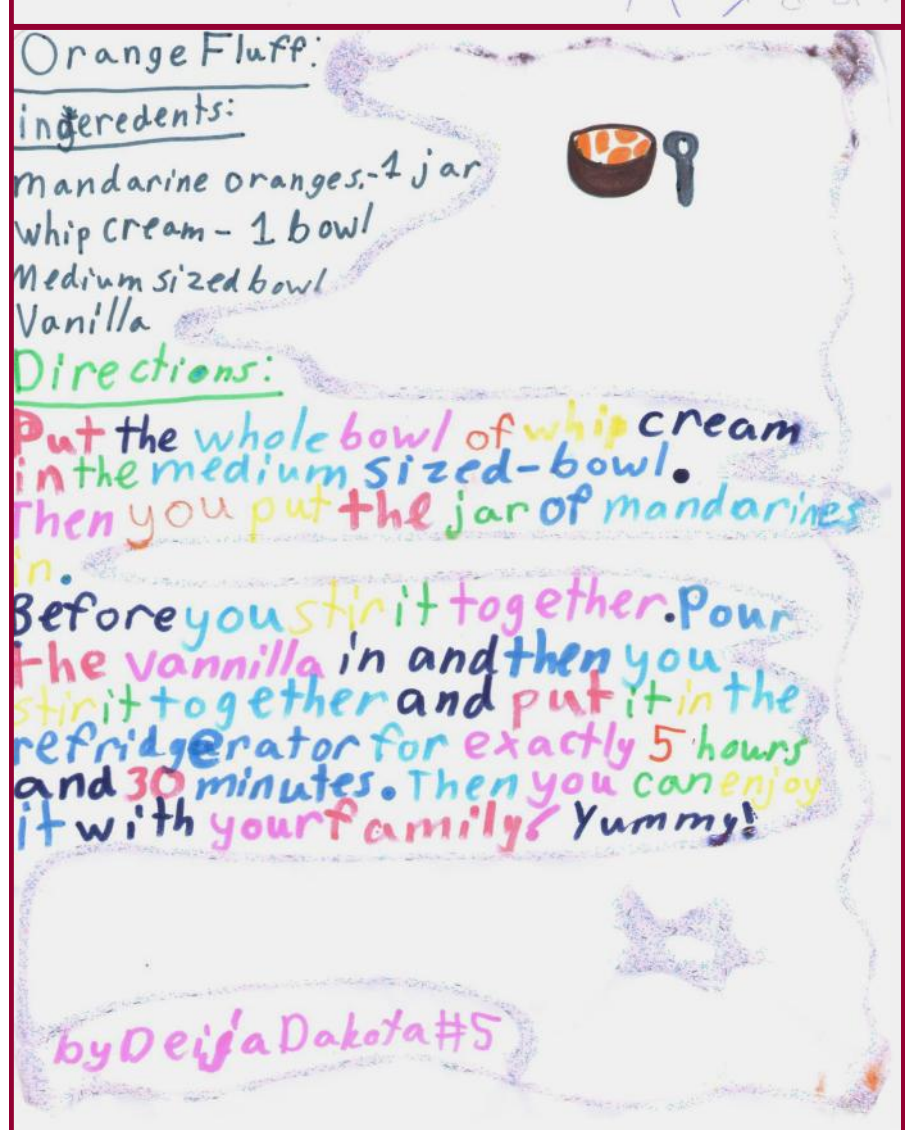 Orange Fluff:
ingeredents:
mandarine oranges.-1 jar
whip cream - 1 bowl
Medium sized bowl
Vanilla
Directions:
Put the whole bowl of whip cream
in the medium sized-bowl.
Then you put the jar of mandarines
in.
Before you stir it together. Pour
the vannilla in and then you
stir it together and put it in the
refridgerator for exactly 5 hours
and 30 minutes. Then you can enjoy
it with your family! Yummy!
by Deija Dakota #5